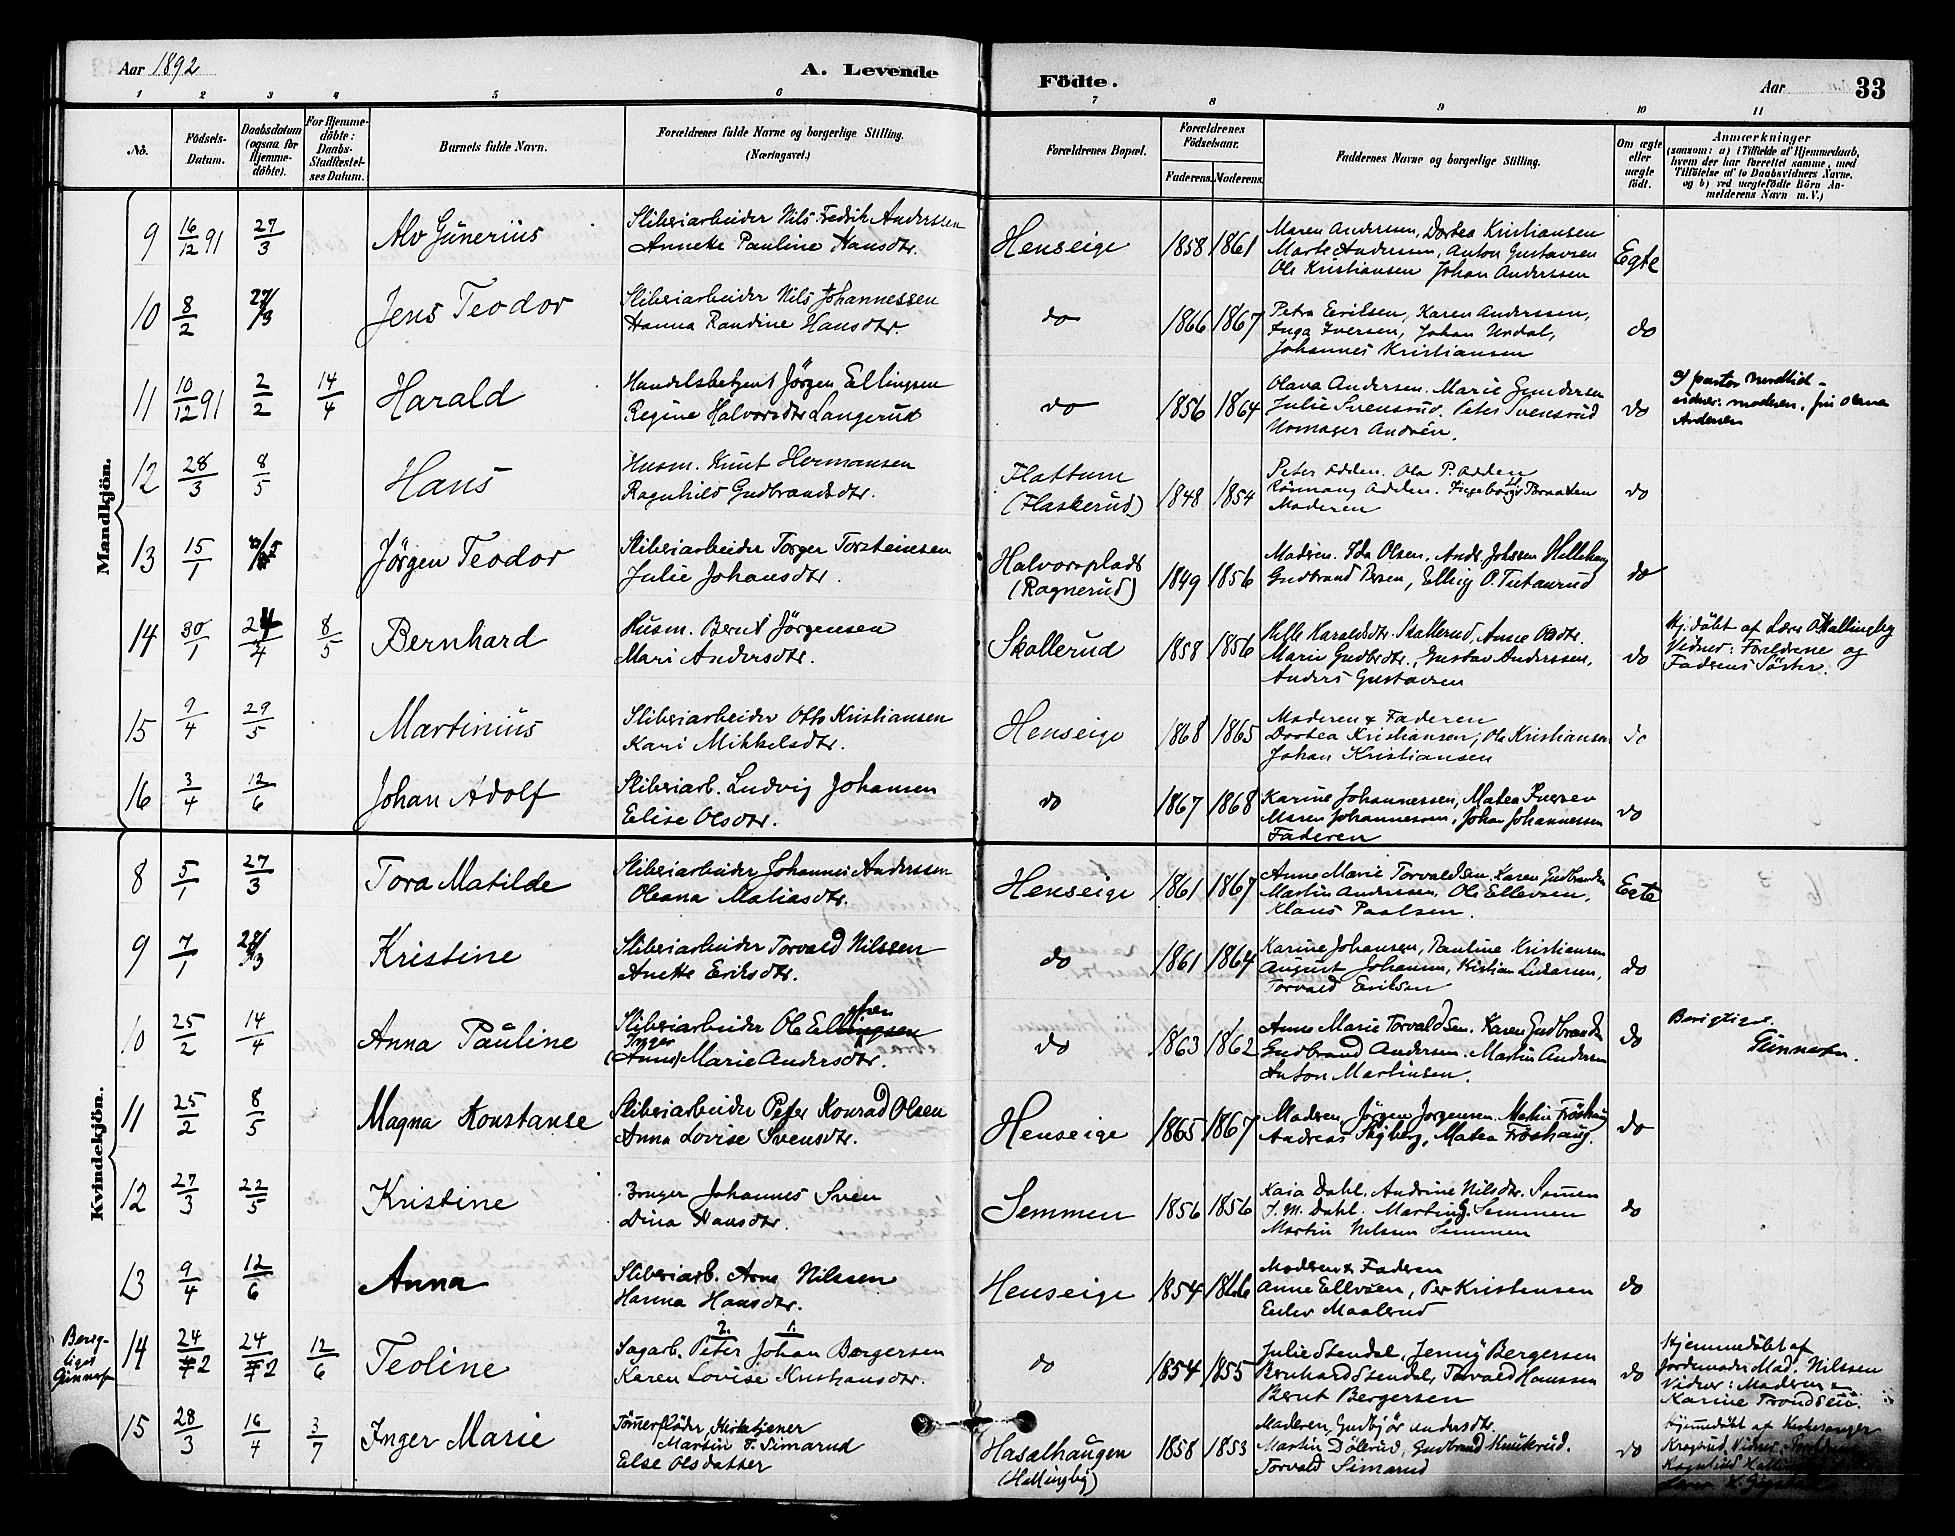 Aar 1892
A. Levende
Födte.
Aar
33
1 2 3 4 5 6 7 8 9 10 11
No.
Födsels-Datum.
Daabsdatum (ogsaa for Hjemme-döbte).
For Hjemme-döbte: Daabs-Stadfæstel-ses Datum.
Barnets fulde Navn.
Forældrenes fulde Navne og borgerlige Stilling.
(Næringsvei.)
Forældrenes Bopæl.
Forældrenes Födselsaar.
Faderens. Moderens.
Faddernes Navne og borgerlige Stilling.
Om ægte eller uægte födt.
Anmærkninger
(saasom: a) i Tilfælde af Hjemmedaab,
hvem der har forrettet samme, med
Tilföielse af to Daabsvidners Navne,
og b) ved uægtefödte Börn An-
melderens Navn m. V.)
Mandkjön.
9 16/12 91 27/3 Alv Gunerius
Sliberiarbeider Nils Fredrik Anderssen
Annette Pauline Hansdtr.
Henseige 1858 1861
Maren Andersen, Dortea Kristiansen
Marte Andersen, Anton Gustavsen
Ole Kristiansen Johan Anderssen
Egte
10 8/2 27/3 Jens Teodor
Sliberiarbeider Nils Johannessen
Hanna Randine Hansdtr.
do 1866 1867
Petra Eriksen, Karen Anderssen,
Inga Iversen, Johan Undal,
Johannes Kristiansen
do
11 10/12 91 2/2 14/4 Harald
Handelsbetjent Jörgen Ellingsen
Regine Halvorsdtr Langerud
do 1856 1864
Olava Andersen. Marie Gundersen
Julie Svensrud. Peter Svensrud
Urmager Andrén.
do
12 28/3 8/5 Hans
Husm. Knut Hermansen
Ragnhild Gudbrandsdtr.
Flattum
(Flaskerud) 1848 1854
Peter Adden. Ola P. Adden
Rönnaug Adden. Ingeborg Braaten
Moderen
do
13 15/1 Jörgen Teodor
Sliberiarbeider Torger Torsteinsen
Julie Johansdtr.
Halvorsplads
(Ragnerud) 1849 1856
Moderen. Ida Olsen. Andr. Johssen Hellehaug
Gudbrand Persen, Elling O. Tutanrud
do
14 30/1 24/4 8/5 Bernhard
Husm. Bernt Jörgensen
Mari Andersdtr.
Skollerud 1858 1856
Helle Haraldsdtr. Skollerud, Anne Olsdtr.
Marie Gudbrdtr., Gustav Anderssen,
Anders Gustavsen
do
Hj.döbt af Lærer O. Hallingby
Vidner: Foreldrene og
Faderens Söster.
15 9/4 29/5 Martinius
Sliberiarbeider Otto Kristiansen
Kari Mikkelsdtr.
Henseige 1868 1865
Moderen & Faderen
Dortea Kristiansen, Ole Kristiansen
Johan Kristiansen
do
16 3/4 12/6 Johan Adolf
Sliberiarb. Ludvig Johansen
Elise Olsdtr.
do 1867 1868
Karine Johannessen, Matea Iversen
Maren Johannessen, Johan Johannessen
Faderen
do
Kvindekjön.
8 5/1 27/3 Tora Matilde
Sliberiarbeider Johannes Anderssen
Oleana Matiasdtr.
Henseige 1861 1867
Anne Marie Torvaldsen. Karen Gudbrandsen
Martin Andersen, Ole Ellevsen,
Klaus Paalsen.
Egte
9 7/1 Kristine
Sliberiarbeider Torvald Nilssen
Anette Eriksdtr.
do 1861 1864
Karine Johansen, Pauline Kristiansen
August Johansen, Kristian Larsen,
Torvald Eriksen
do
10 25/2 14/4 Anna Pauline
Sliberiarbeider Ole Ellingsen
Inger
(Anne) Marie Andersdtr.
do 1863 1862
Anne Marie Torvaldsen. Karen Gudbrandsen
Gudbrand Andersen. Martin Andersen
Anton Martinsen.
do
Berigtiges.
Gunnesen.
11 25/2 8/5 Magna Konstanse
Sliberiarbeider Peter Konrad Olsen
Anna Lovise Svensdtr.
Henseige 1865 1867
Moderen, Jörgen Jörgensen. Matin Fröshaug
Andreas Skjberg, Matea Fröshaug.
do
12 27/3 22/5 Kristine
Bruger Johannes Sven
Dina Hansdtr.
Semmen 1856 1856
Kaia Dahl. Andrine Nilsdtr. Semmen
J. M. Dahl. Martin G. Semmen
Martin Nilssen Semmen
do
13 9/4 12/6 Anna
Sliberiarb. Arne Nilssen
Hanna Hansdtr.
Henseige 1854 1866
Moderen & Faderen
Anne Ellevsen, Per Kristensen
Maalerud
do
14 24/2 24/2 12/6 Teoline
2. 1.
Sagarb. Peter Johan Bergersen
Karen Lovise Kristiansdtr.
do 1854 1855
Julie Stendal, Jenny Bergersen
Bernhard Stendal, Torvald Hanssen
Bernt Bergersen
do
Hjemmedöbt af
Jordemoder Mad. Nilssen
Vidner: Moderen &
Karine Trondsen.
15 28/3 16/4 3/7 Inger Marie
Tömmerflöder, Kirketjener
Martin T. Simarud
Else Olsdatter
Haselhaugen
(Hallingby) 1858 1853
Moderen, Gudbjör Andersdtr.
Martin Dölerud, Gudbrand Muikrud.
Torvald Simarud
do
Hjemmedöbt af Kirkesanger